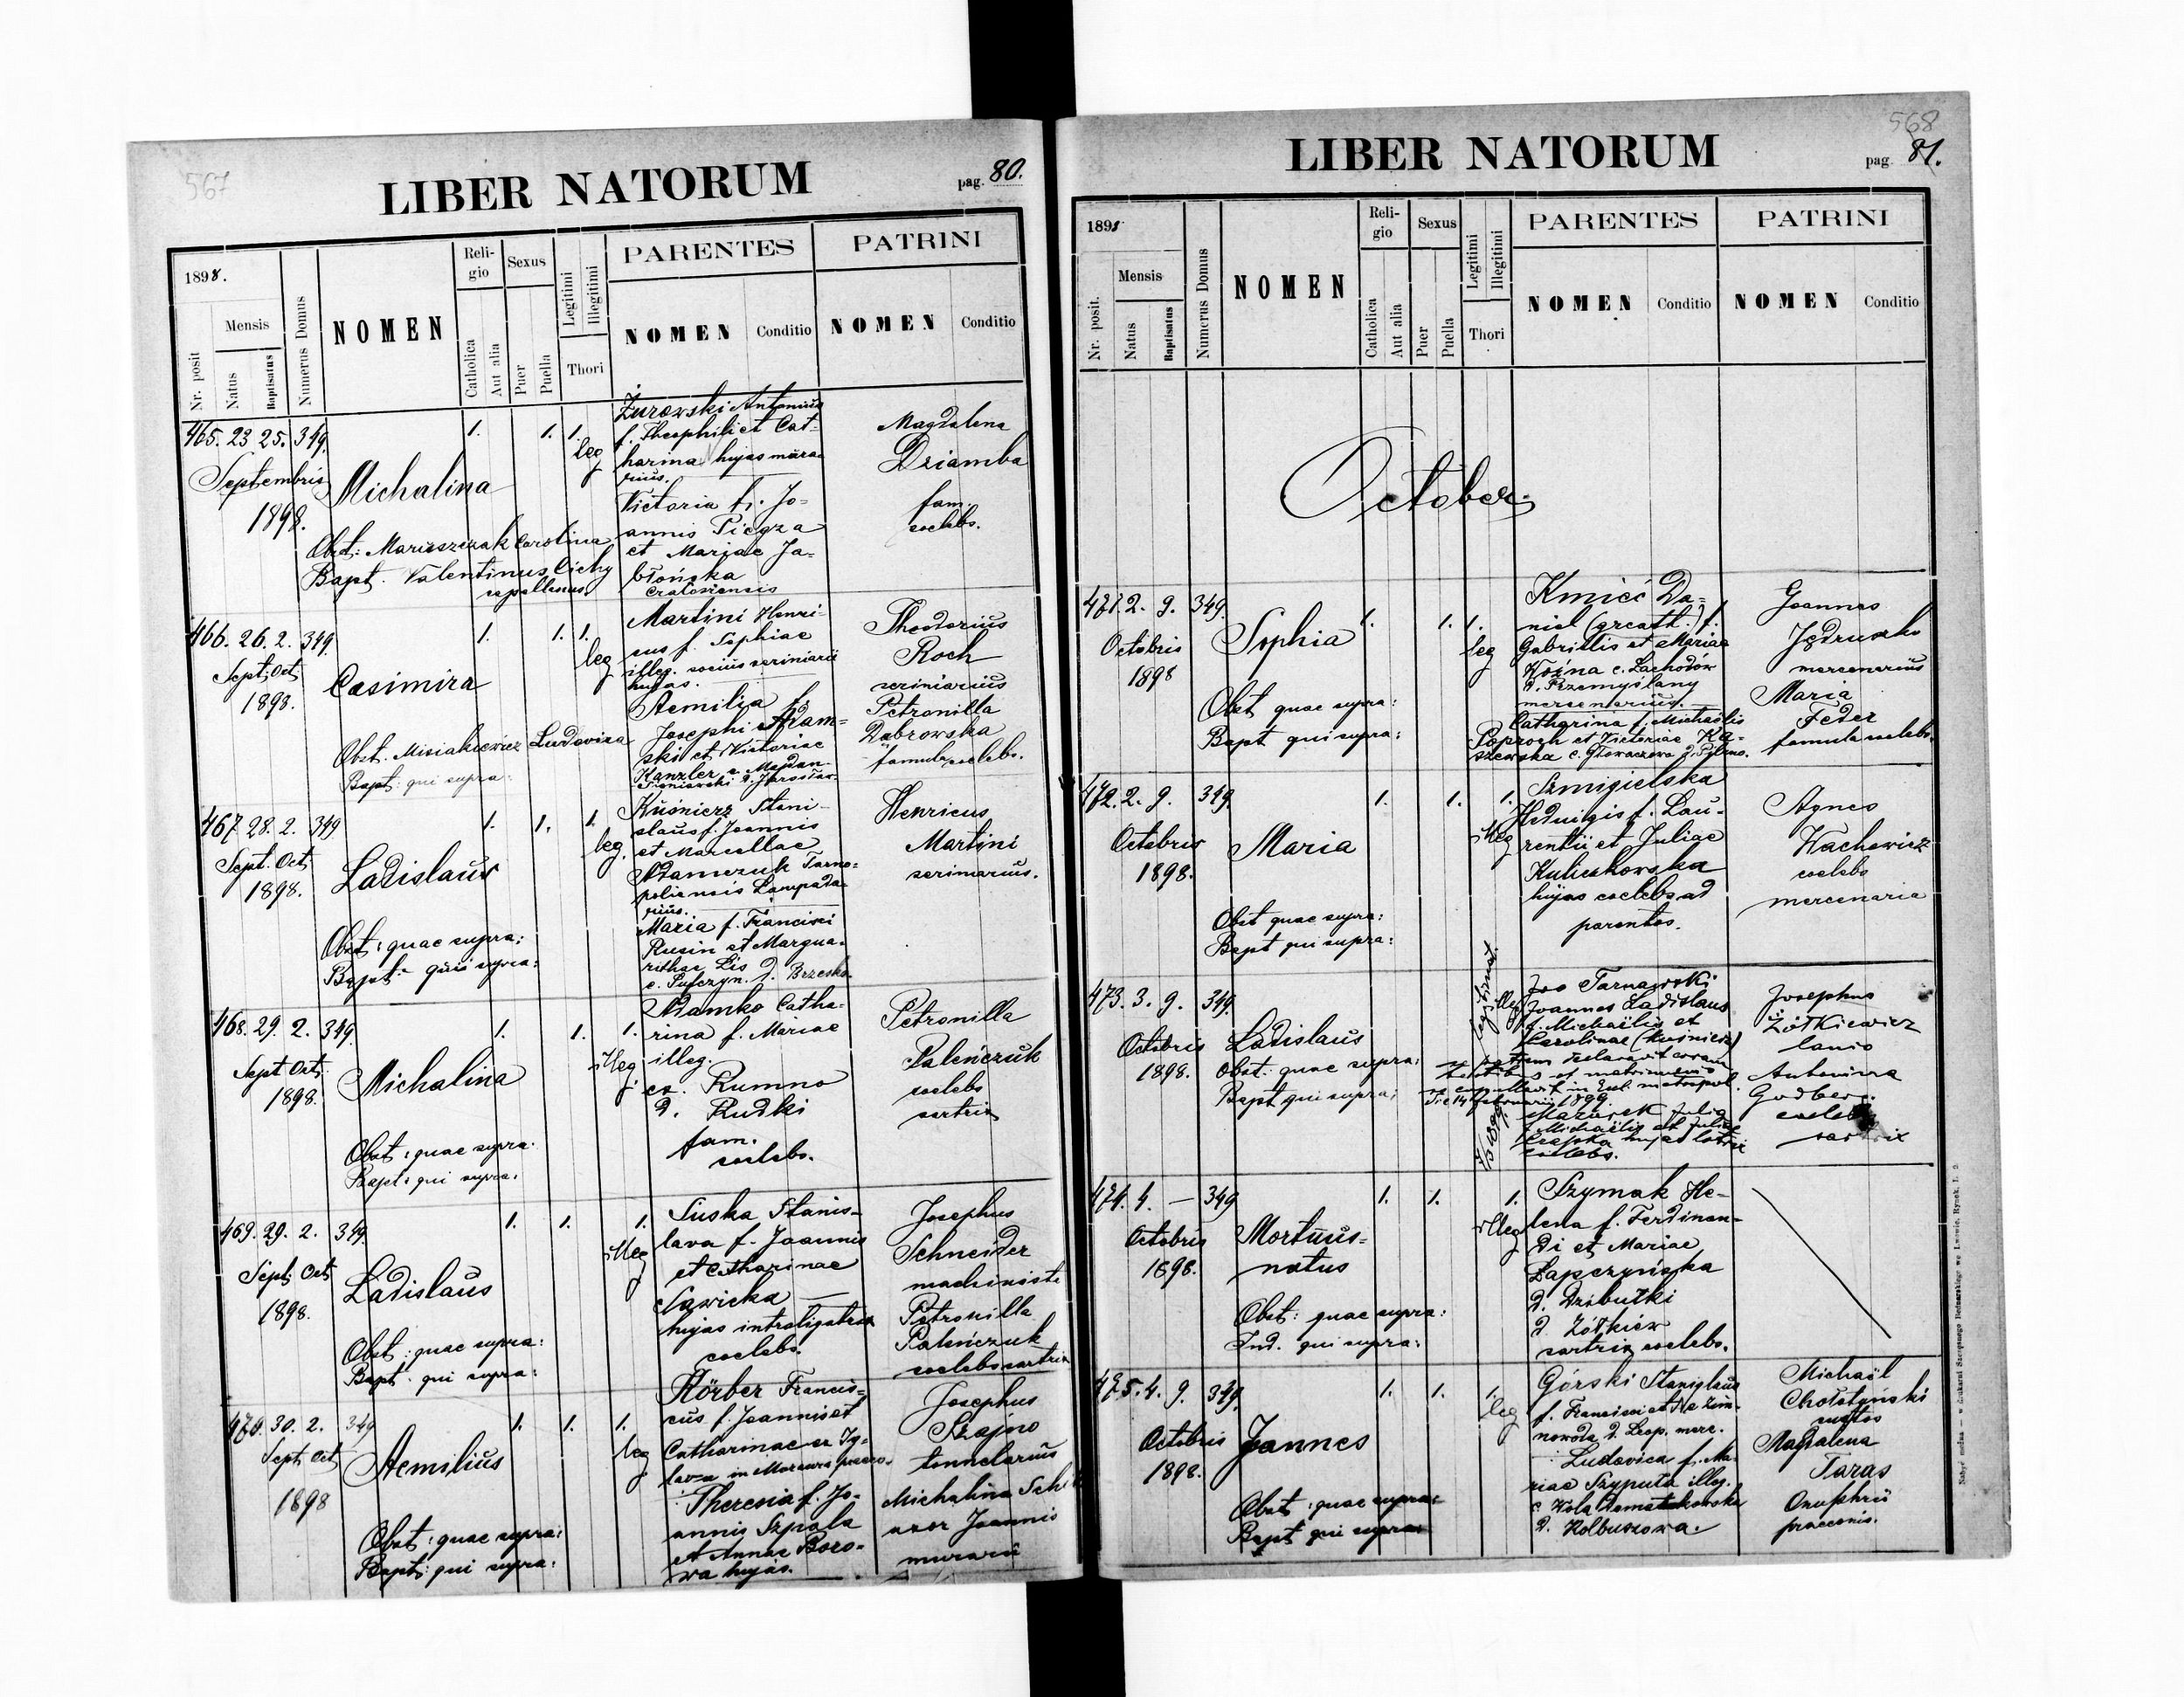 567
LIBER NATORUM
pag. 80.
1898.
Nr. posit
Mensis
Natus
Baptisatus
Numerus Domus
NOMEN
Religio
Catholica
Aut alia
Sexus
Puer
Puella
Legitimi
Illegitimi
Thori
PARENTES
NOMEN
Conditio
PATRINI
NOMEN
Conditio
465. 23 25. 349.
Septembris
1898.
Michalina
1. 1. 1.
leg
Obst: Maruszczak Carolina
Bapt. Valentinus Cichy
capellanus
Żurowski Antonius
f. Theophili et Cat-
harina hujas murar
rius.
Victoria f. Jo-
annis Piegza
et Mariae Ja-
błońska
Magdalena
Dziamba
fam.
coelebs.
466. 26. 2. 349.
Sept. Oct
1898.
Casimira
1. 1. 1.
leg
Obst. Misiakiewicz Ludovica
Bapt: qui supra:
Martini Henri-
cus f. Sophiae
illeg. socius scriniarii
hujas.
Aemilia f.
Josephi Adam-
ski et Victoriae
Kanzler c. Majdan
Theodorius
Roch
scriniarius
Petronilla
Dąbrowska
famula coelebs.
467. 28. 2. 349
Sept. Oct
1898.
Ladislaus
1. 1. 1.
leg.
Obst: quae supra:
Bapt: qui supra:
Kuśnierz Stani-
slaus f. Joannis
et Marcellae
Adamczuk Tarno-
poliensis Lampada-
rius.
Maria f. Francisci
Rusin et Margua-
rithae Lis d. Brzesko
c. Pufczyn.
Henricus
Martini
scrinarius.
468. 29. 2. 349.
Sept Oct.
1898.
Michalina
1. 1. 1.
illeg
Obst: quae supra.
Bapt: qui supra.
Adamko Catha-
rina f. Mariae
illeg.
ex. Rumno
d. Rudki
fam.
coelebs.
Petronilla
Paleńczuk
coelebs
sartrix
469. 29. 2. 349.
Sept. Oct
1898.
Ladislaus
1. 1. 1.
illeg
Obst: quae supra:
Bapt. qui supra:
Suska Stanis-
lava f. Joannis
et Catharinae
Sawicka
hujas introligatrix
coelebs.
Josephus
Schneider
machinista
Petronilla
Paleńczuk
coelebs sartrix
470. 30. 2. 349
Sept. Oct
1898
Aemilius
1. 1. 1.
leg
Obst: quae supra:
Bapt: qui supra:
Körber Francis-
cus f. Joannis et
Catharinae ex Ig-
Theresia f. Jo-
annis Szpola
et Annae Boro-
wa hujas.
Josephus
Szajno
tonnelarius
Michalina
uxor Joannis
murarii
568
LIBER NATORUM
pag. 81.
1898
Nr. posit.
Mensis
Natus
Baptisatus
Numerus Domus
NOMEN
Religio
Catholica
Aut alia
Sexus
Puer
Puella
Legitimi
Illegitimi
Thori
PARENTES
NOMEN
Conditio
PATRINI
NOMEN
Conditio
October
471. 2. 9. 349.
Octobris
1898
Sophia
1. 1. 1.
leg
Obst quae supra:
Bapt qui supra:
Kmieć Da-
niel (gr cath.) f.
Gabrielis et Mariae
Woźna c. Lachodów
d. Przemyślany
mercenarius.
Catharina f. Michaelis
Paproch et Victoriae Ka-
szewska c. Głowaczowa d. Pilzno.
Joannes
Jędruszko
mercenarius
Maria
Feder
famula coelebs.
472. 2. 9. 349
Octobris
1898.
Maria
1. 1. 1.
illeg
Obst quae supra:
Bapt qui supra:
Szmigielska
Hedvigis f. Lau-
rentii et Juliae
Kulczkowska
hujas coelebs ad
parentes.
Agnes
Wachowicz
coelebs
mercenaria
473. 3. 9. 349.
Octobris
1898.
Ladislaus
Obst: quae supra:
Bapt qui supra:
illeg
legitimat.
Tarnawski
Joannes Ladislaus
f. Michaëlis et
Carolinae (Kuśnierz)
se patrem declaravit coram
testibus et matrimonio
se copulavit in Eccl. metropol.
die 14 februarii 1899.
Mazurek Julia
f. Michaëlis et Juliae
Czapka hujas lotrix
coelebs.
Josephus
Żółkiewicz
lanio
Antonina
coelebs
sartrix
474. 4. — 349
Octobris
1898.
Mortuus-
natus
1. 1. 1.
illeg
Obst: quae supra:
Ind. qui supra:
Szymak He-
lena f. Ferdinan-
di et Mariae
Łapczyńska
d. Dzibułki
d. Żółkiew
sartrix coelebs.
475. 4. 9. 349.
Octobris
1898.
Joannes
1. 1. 1.
leg
Obst: quae supra:
Bapt qui supra:
Górski Stanislaus
f. Francisci et
d. Leop. merc.
Ludovica f. Ma-
riae Szyputa illeg.
c Wola
d. Kolbuszowa.
Michaël
Chołotyński
custos
Magdalena
Taras
Onuphrii
praeconis.